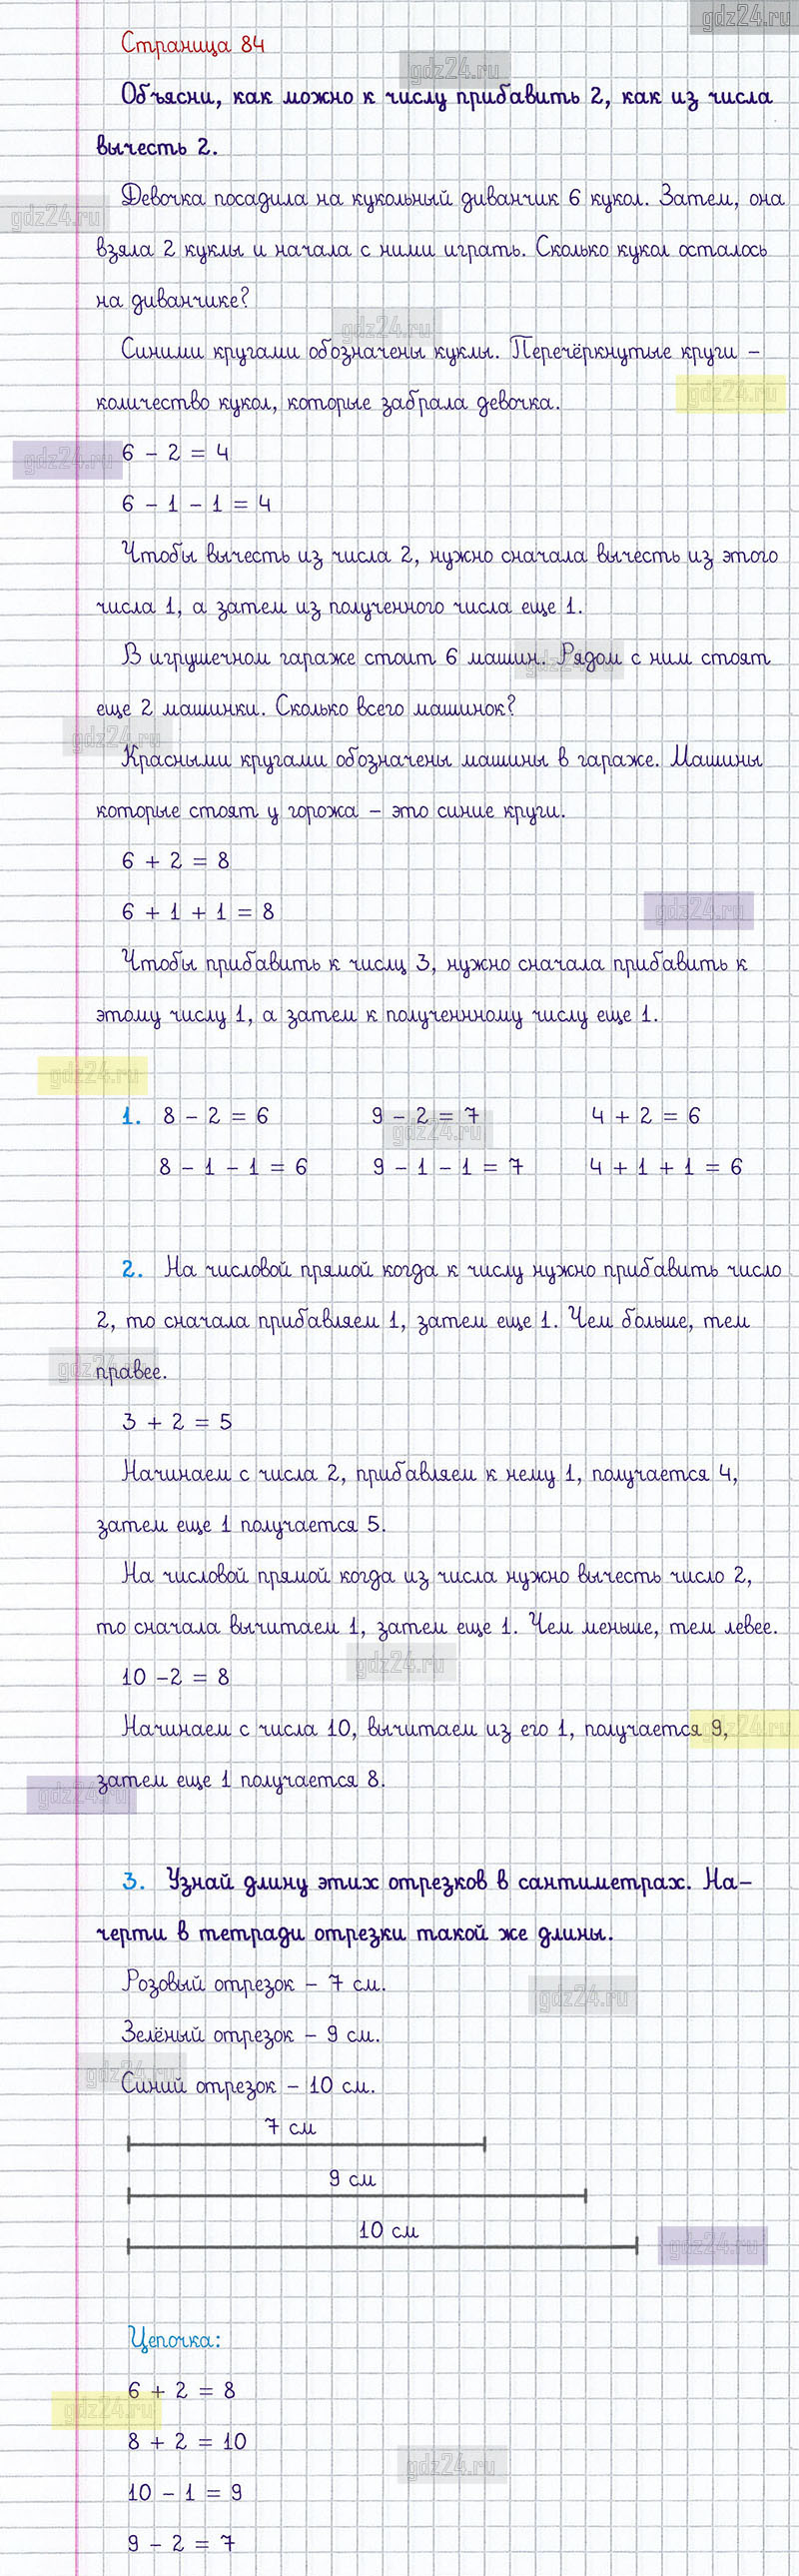 gdz24.ru
Страница 84
gdz24.ru
Объясни, как можно к числу прибавить 2, как из числа
вычесть 2.
Девочка посадила на кукольный диванчик 6 кукол. Затем, она
gdz24.ru
взяла 2 куклы и начала с ними играть. Сколько кукол осталось
на диванчике?
gdz24.ru
Синими кругами обозначены куклы. Перечёркнутые круги –
gdz24.ru
количество кукол, которые забрала девочка.
gdz24.ru
6 - 2 = 4
6 - 1 - 1 = 4
Чтобы вычесть из числа 2, нужно сначала вычесть из этого
числа 1, а затем из полученного числа еще 1.
В игрушечном гараже стоит 6 машин. Рядом с ним стоят
gdz24.ru
еще 2 машинки. Сколько всего машинок?
gdz24.ru
Красными кругами обозначены машины в гараже. Машины
которые стоят у горожа – это синие круги.
6 + 2 = 8
6 + 1 + 1 = 8
gdz24.ru
Чтобы прибавить к числу 3, нужно сначала прибавить к
этому числу 1, а затем к полученнному числу еще 1.
gdz24.ru
1. 8 - 2 = 6 9 - 2 = 7 4 + 2 = 6
gdz24.ru
8 - 1 - 1 = 6 9 - 1 - 1 = 7 4 + 1 + 1 = 6
2. На числовой прямой когда к числу нужно прибавить число
2, то сначала прибавляем 1, затем еще 1. Чем больше, тем
gdz24.ru
правее.
3 + 2 = 5
Начинаем с числа 2, прибавляем к нему 1, получается 4,
затем еще 1 получается 5.
На числовой прямой когда из числа нужно вычесть число 2,
то сначала вычитаем 1, затем еще 1. Чем меньше, тем левее.
gdz24.ru
10 -2 = 8
Начинаем с числа 10, вычитаем из его 1, получается 9,
gdz24.ru
затем еще 1 получается 8.
gdz24.ru
3. Узнай длину этих отрезков в сантиметрах. На-
черти в тетради отрезки такой же длины.
Розовый отрезок – 7 см.
gdz24.ru
Зелёный отрезок – 9 см.
gdz24.ru
Синий отрезок – 10 см.
7 см
9 см
10 см
gdz24.ru
Цепочка:
6 + 2 = 8
gdz24.ru
8 + 2 = 10
gdz24.ru
10 - 1 = 9
9 - 2 = 7